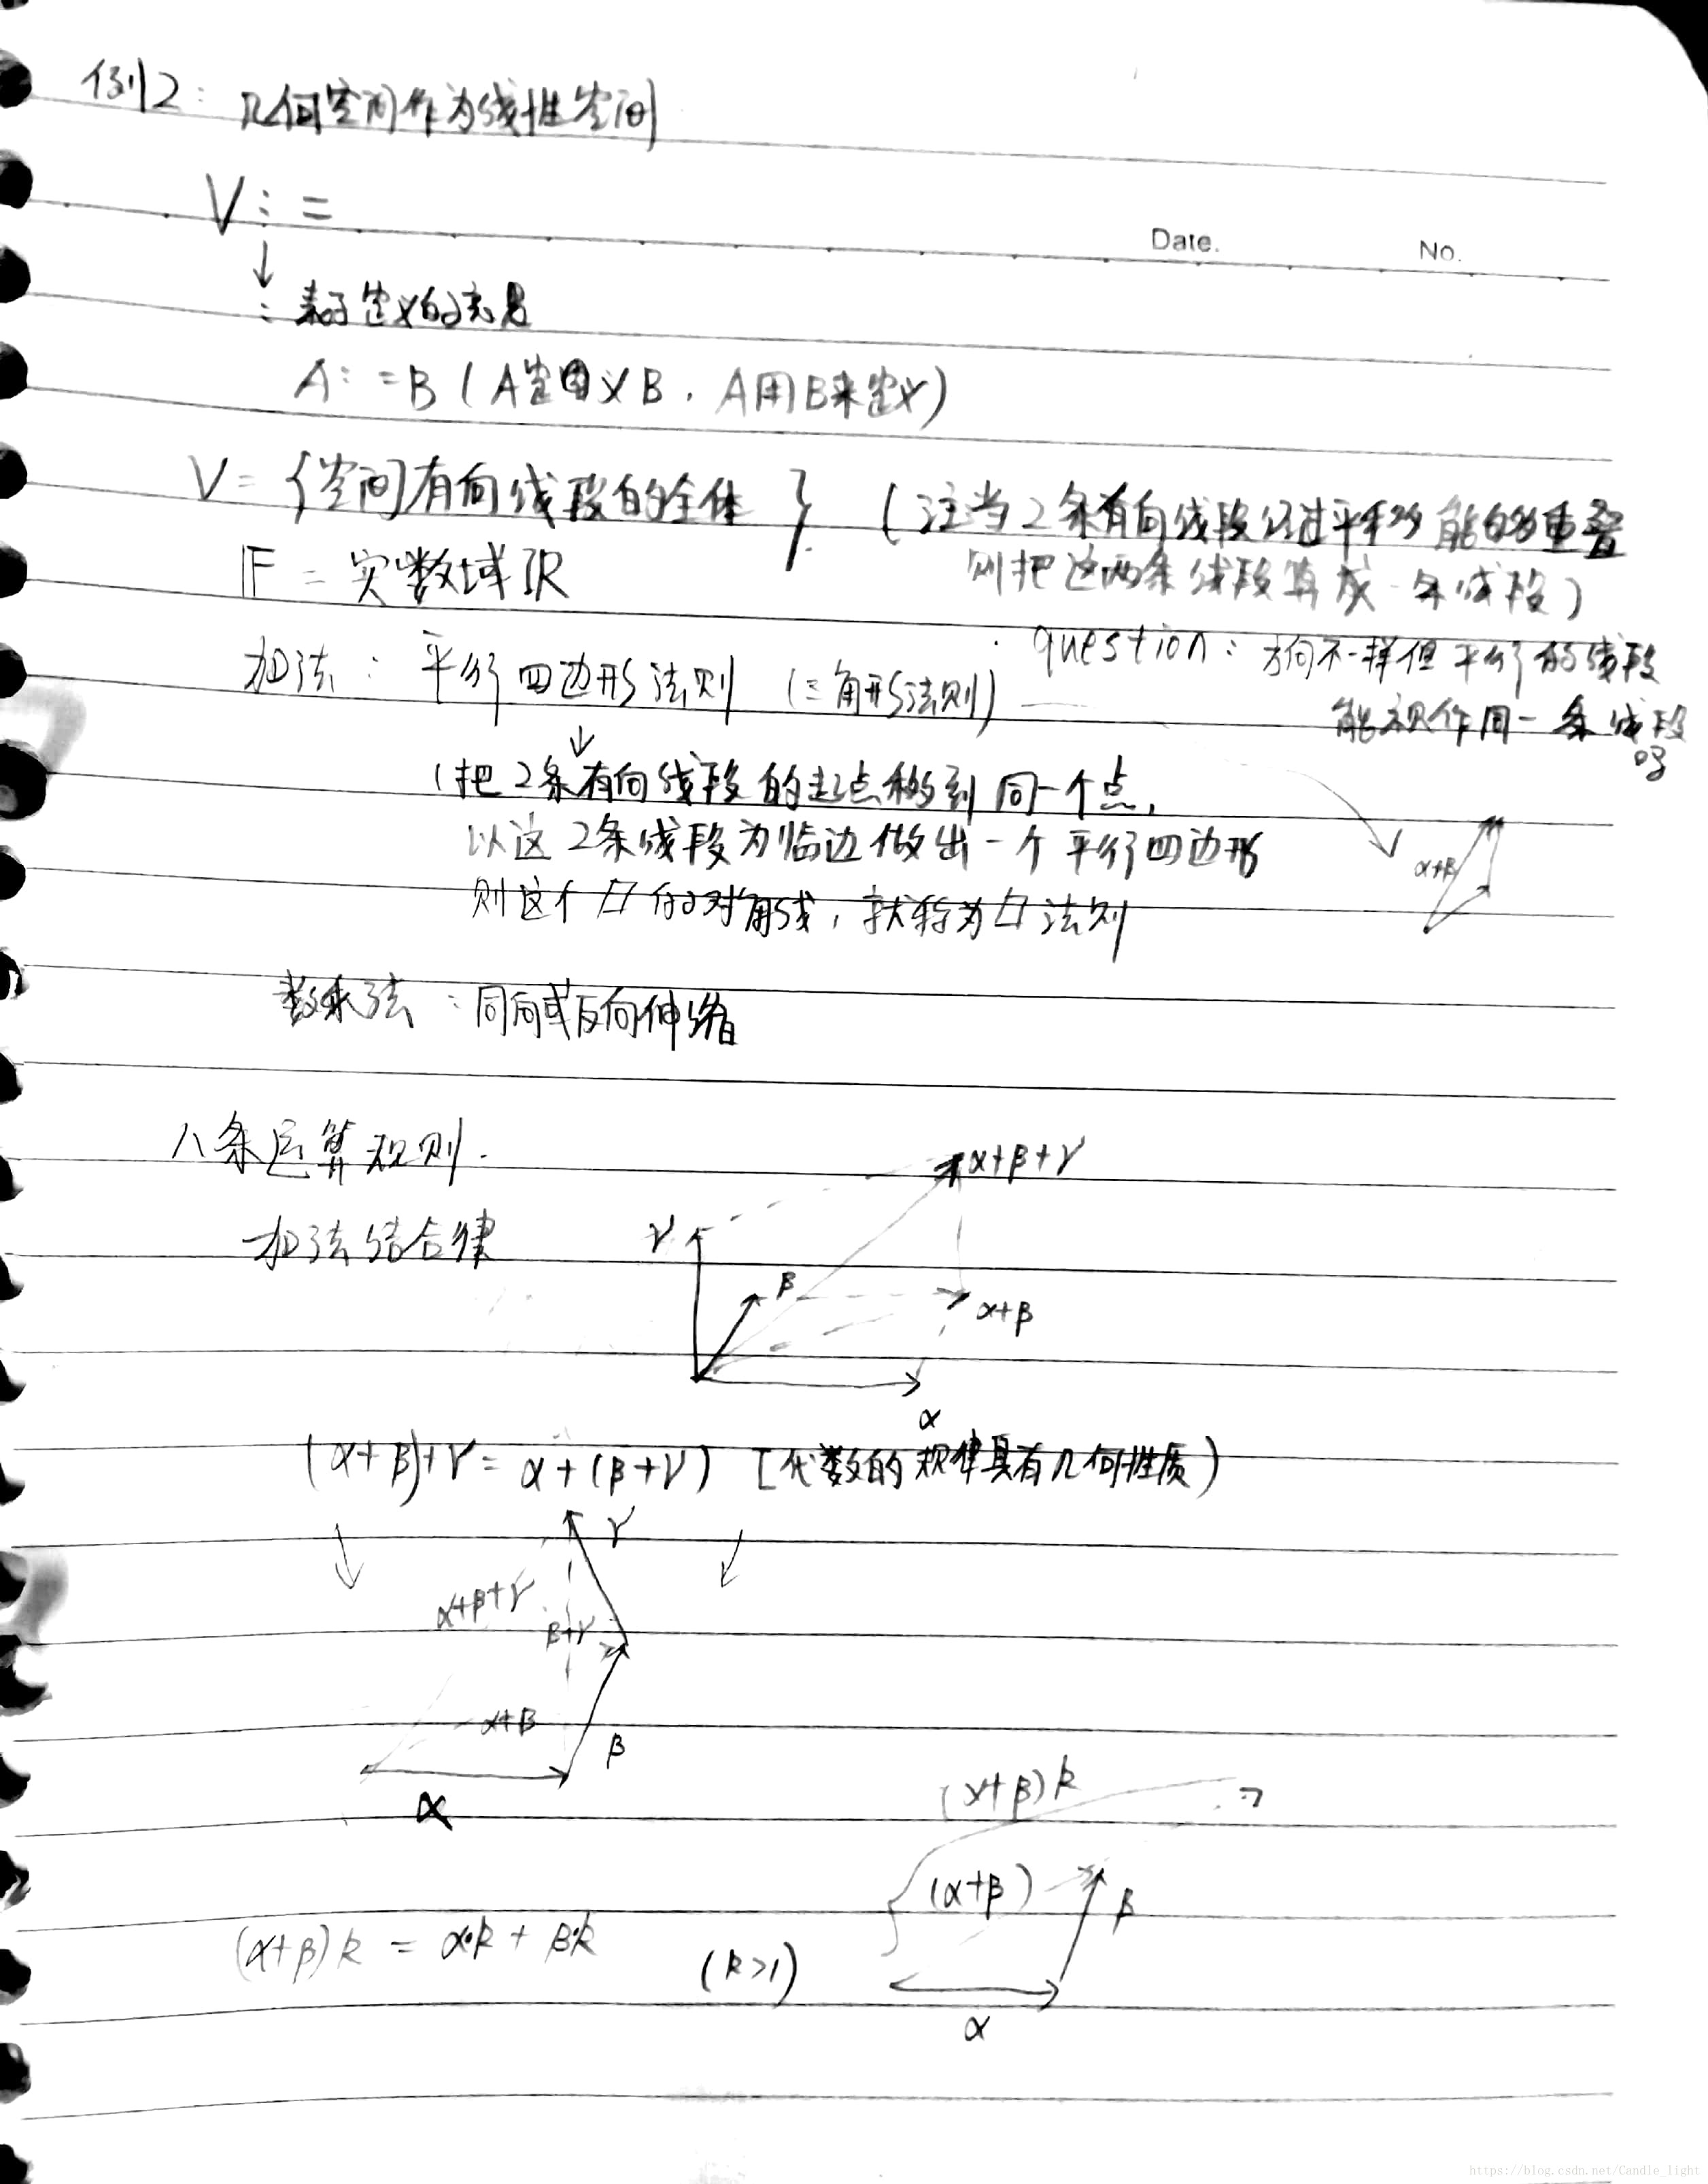 例2: 几何空间作为线性空间
V:=
Date.
No.
: 表示定义的意思
A:=B (A定义B, A用B来定义)
V={空间有向线段的全体} (注当2条有向线段经过平移能够重叠
则把这两条线段算成一条线段)
F=实数域R
question: 方向不一样但平行的线段
能视作同一条线段
吗
加法: 平行四边形法则 (三角形法则)
(把2条有向线段的起点移到同一个点,
以这2条线段为临边做出一个平行四边形
则这个▱的对角线,就称为▱法则
α+β
数乘法: 同向或反向伸缩
八条运算规则.
加法结合律
α+β+γ
γ
β
α+β
α
(α+β)+γ=α+(β+γ) [代数的规律具有几何性质)
γ
α+β+γ
β+γ
α+β
β
α
(α+β)k
(α+β)
β
(α+β)k = α·k + β·k (k>1)
α
https://blog.csdn.net/Candle_light